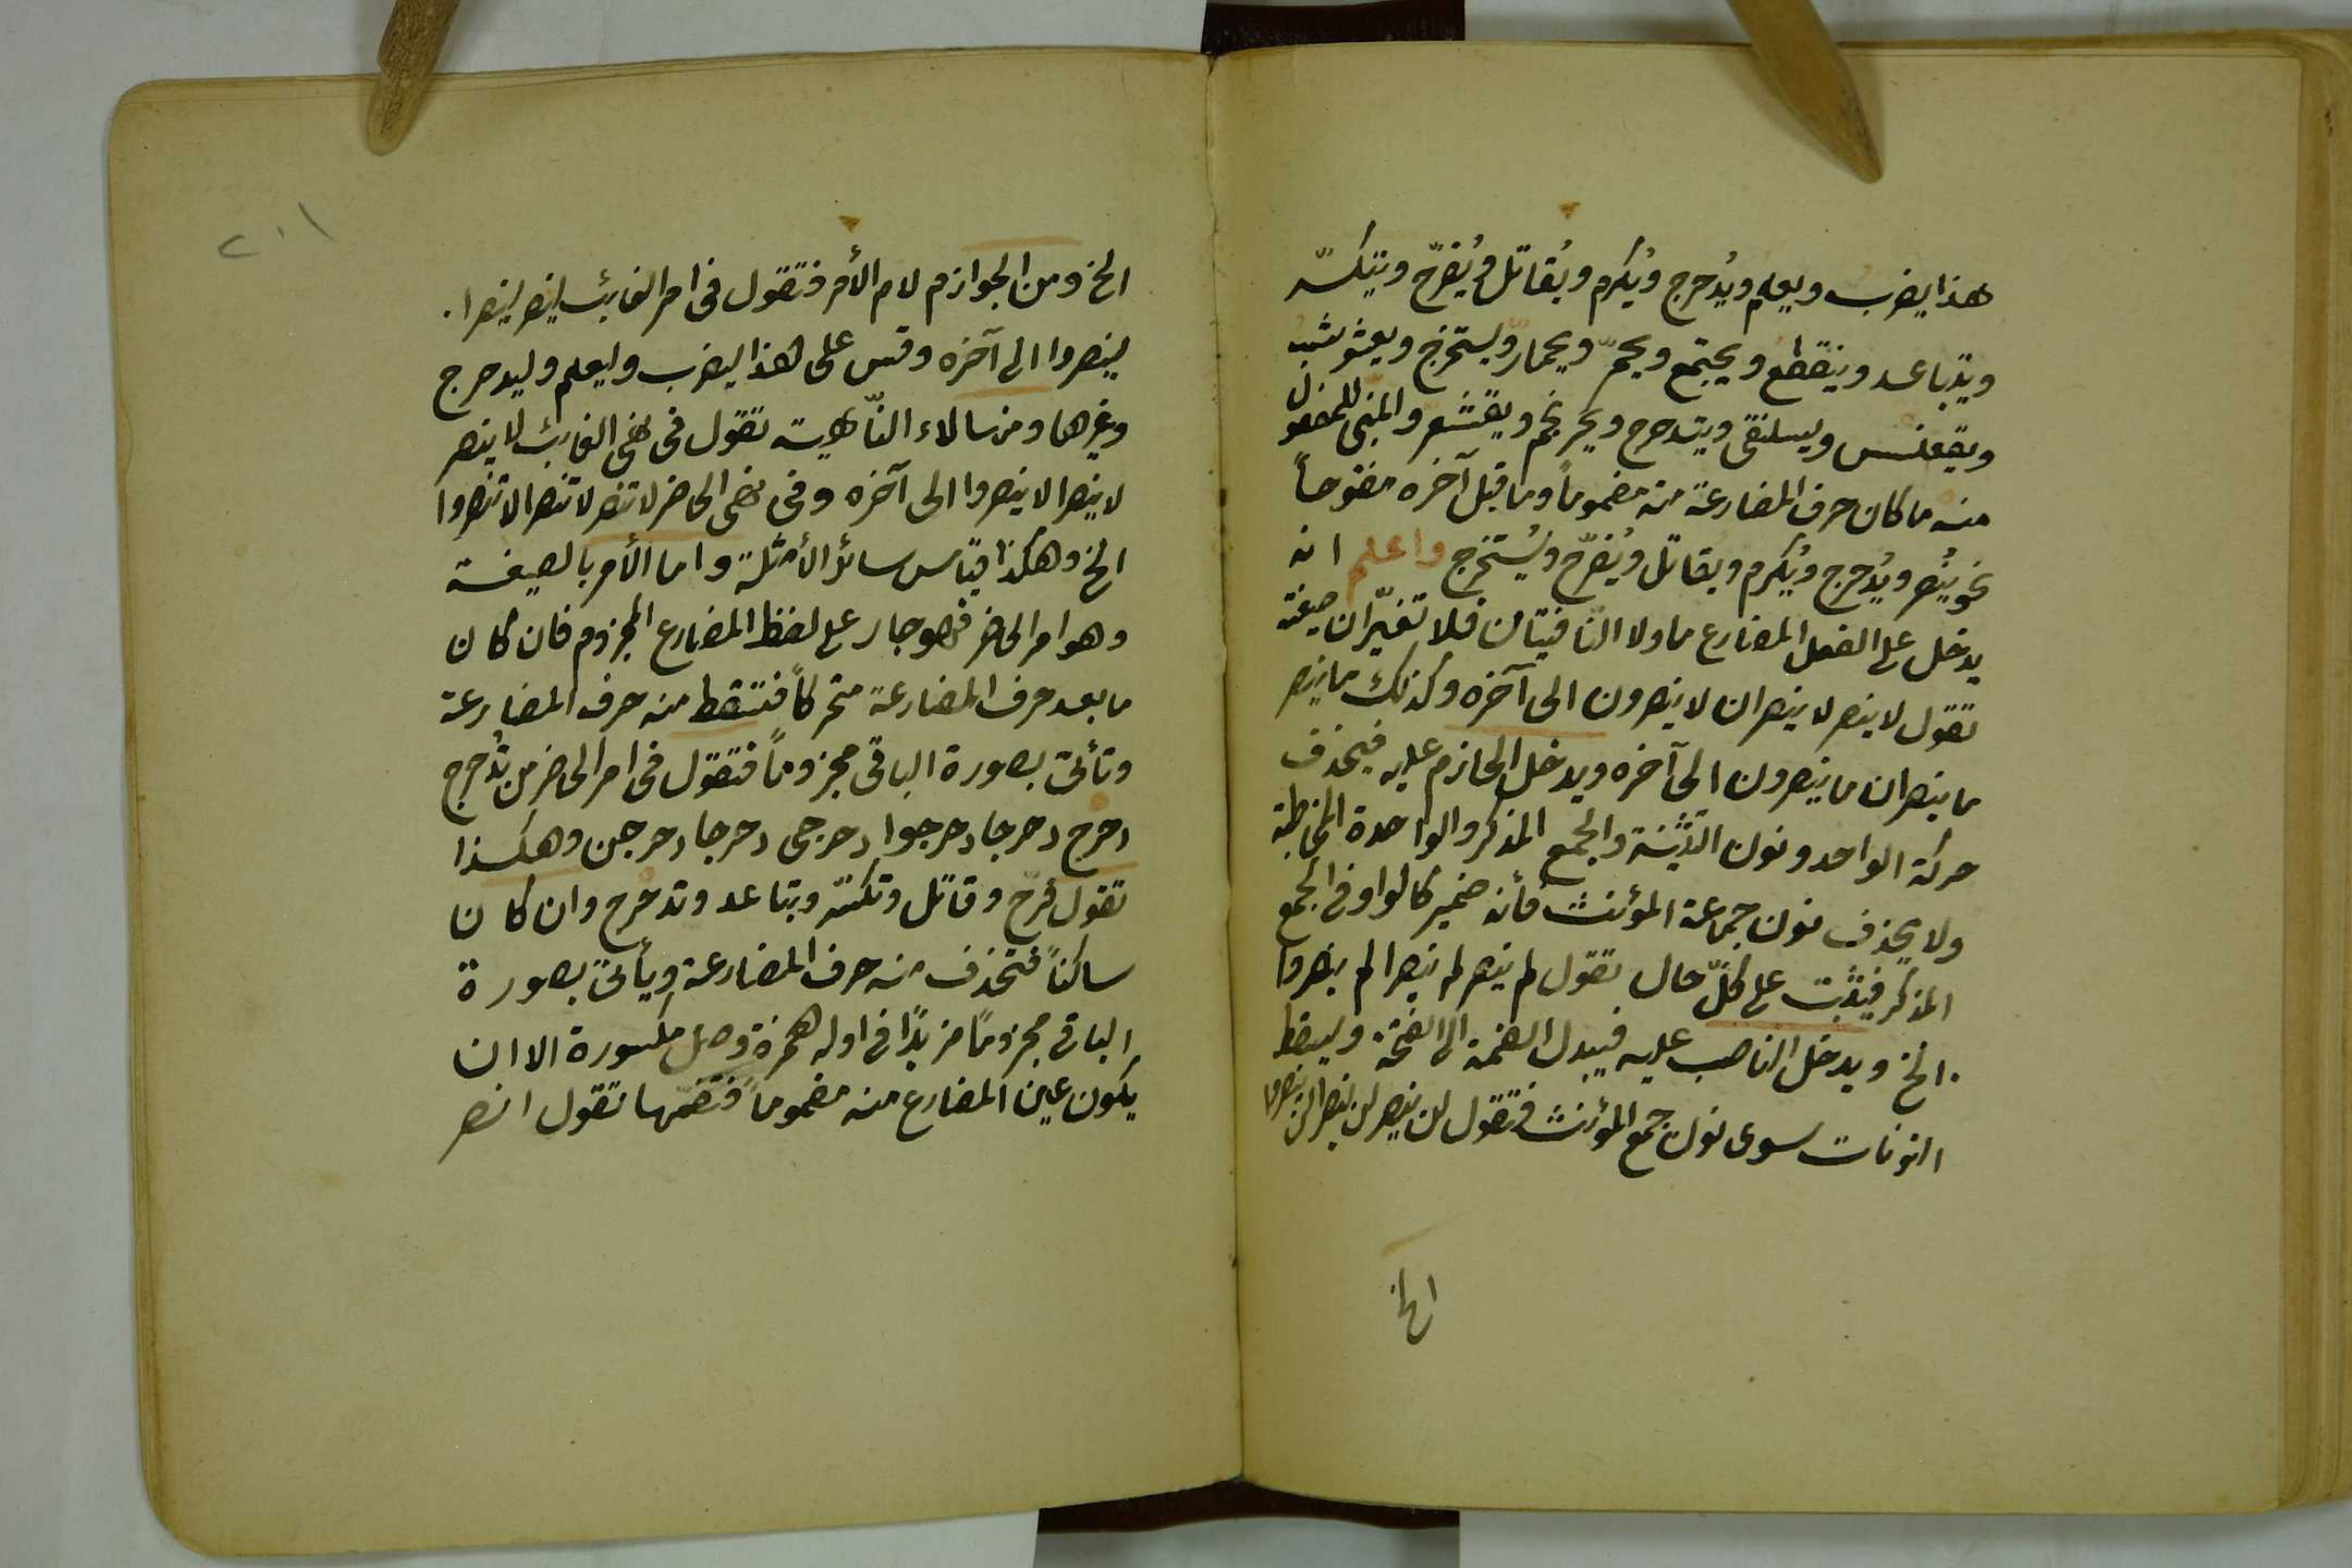 هذا يضرب ويعلم ويُدحرج ويُكرم ويُقاتل ويُفرّح ويتكسّر
ويتباعد وينقطع ويجتمع ويحمرّ ويحمارّ ويستخرج ويعشوشب
ويقعنسس ويسلنقى ويتدحرج ويحرنجم ويقشعر والمبنى للمفعول
منه ما كان حرف المضارعة منه مضموماً وما قبل آخره مفتوحاً
نحو يُنصر ويُدحرج ويُكرم ويقاتل ويُفرّح ويُستخرج واعلم انه
يدخل على الفعل المضارع ما ولا النافيتان فلا تغيّران صيغته
تقول لا ينصر لا ينصران لا ينصرون الى آخره وكذلك ما ينصر
ما ينصران ما ينصرون الى آخره ويدخل الجازم عليه فيحذف
حركة الواحد ونون التثنية والجمع المذكر والواحدة المخاطبة
ولا يحذف نون جماعة المؤنث فأنه ضمير كالواو فى الجمع
المذكر فيثبت على كلّ حال تقول لم ينصر لم ينصرا لم ينصروا
الخ ويدخل الناصب عليه فيبدل الضمة الى الفتحة ويسقط
النونات سوى نون جمع المؤنث فتقول لن ينصر لن ينصرا لن ينصروا
الخ
٢٠١
الخ ومن الجوازم لام الأمر فتقول فى امر الغائب لينصر لينصرا
لينصروا الى آخره وقس على هذا ليضرب وليعلم وليدحرج
وغيرها ومنها لاء النّاهية تقول فى نهى الغائب لا ينصر
لا ينصرا لا ينصروا الى آخره وفى نهى الحاضر لا تنصر لا تنصرا لا تنصروا
الخ وهكذا قياس سائر الأمثلة واما الأمر بالصيغة
وهو امر الحاضر فهو جار على لفظ المضارع المجزوم فان كان
ما بعد حرف المضارعة متحركاً فتسقط منه حرف المضارعة
وتأتى بصورة الباقى مجزوماً فتقول فى امر الحاضر من تُدحرج
دحرج دحرجا دحرجوا دحرجى دحرجا دحرجن وهكذا
تقول فرّح وقاتل وتكسّر وتباعد وتدحرج وان كان
ساكناً فتحذف منه حرف المضارعة ويأتى بصورة
الباقى مجزوماً مزيدًا فى اوله همزة وصل مكسورة الا ان
يكون عين المضارع منه مضموماً فتضمّها تقول انصر